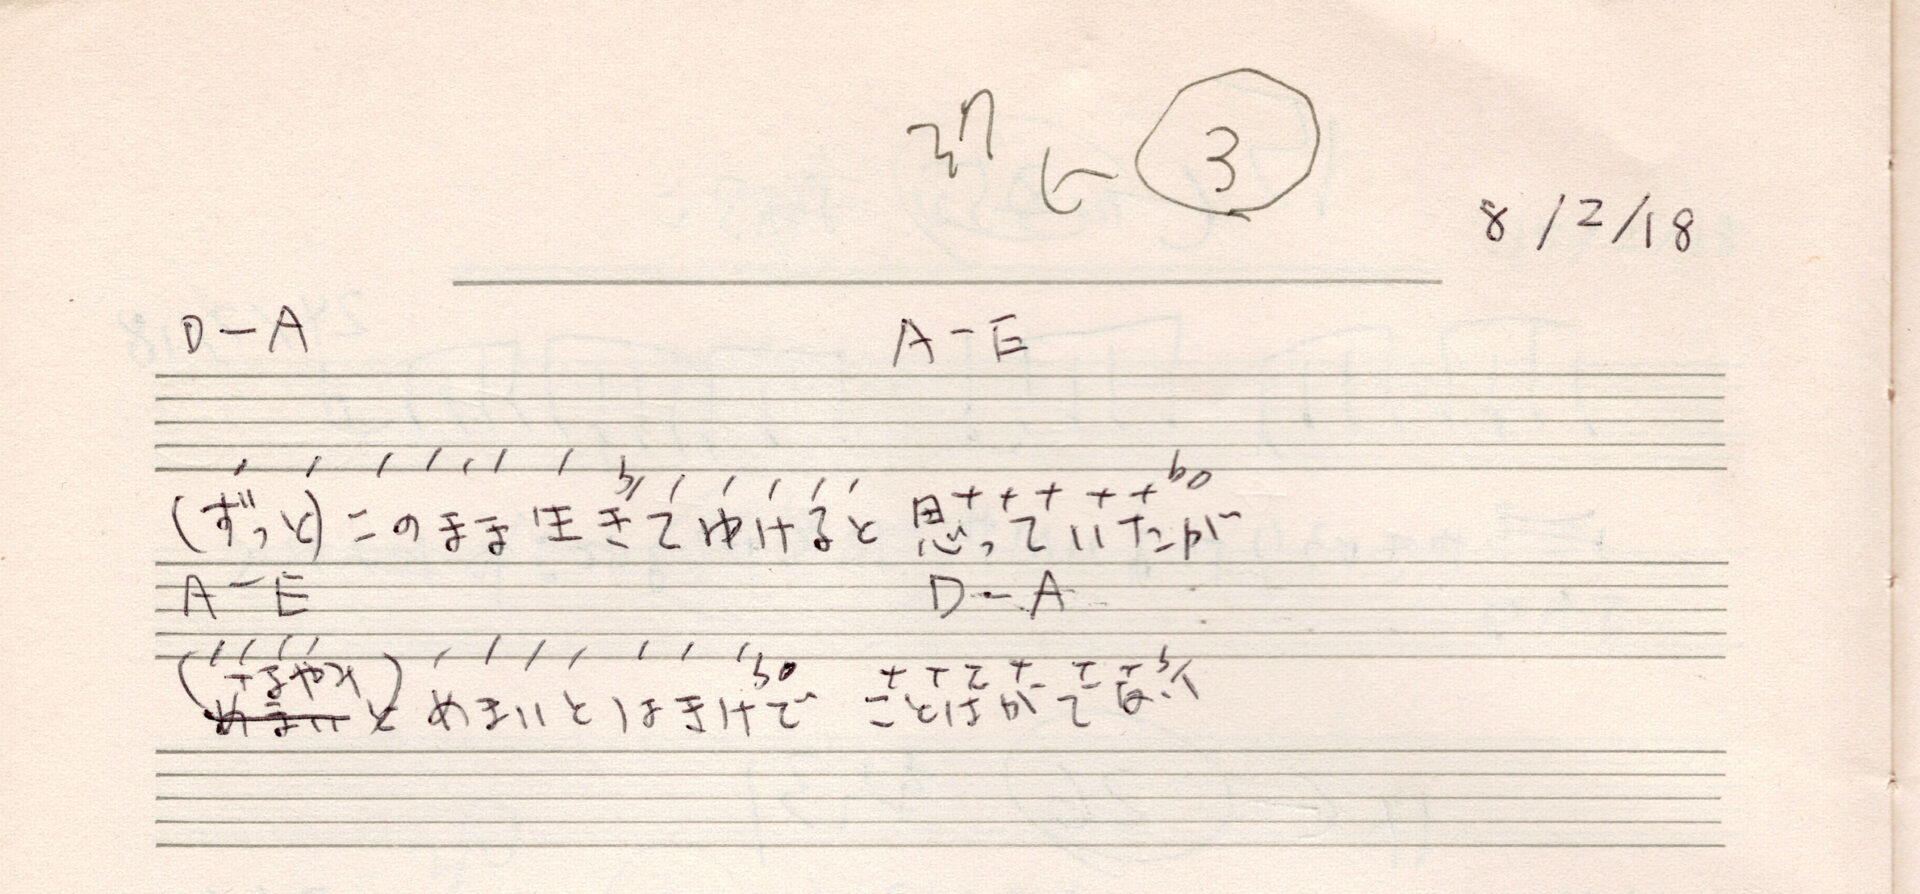 37 ← 3
8/2/18
D-A A-E
(ずっと)このまま生きてゆけると 思っていたが
A-E D-A
めまいとはきけで ことばがでない